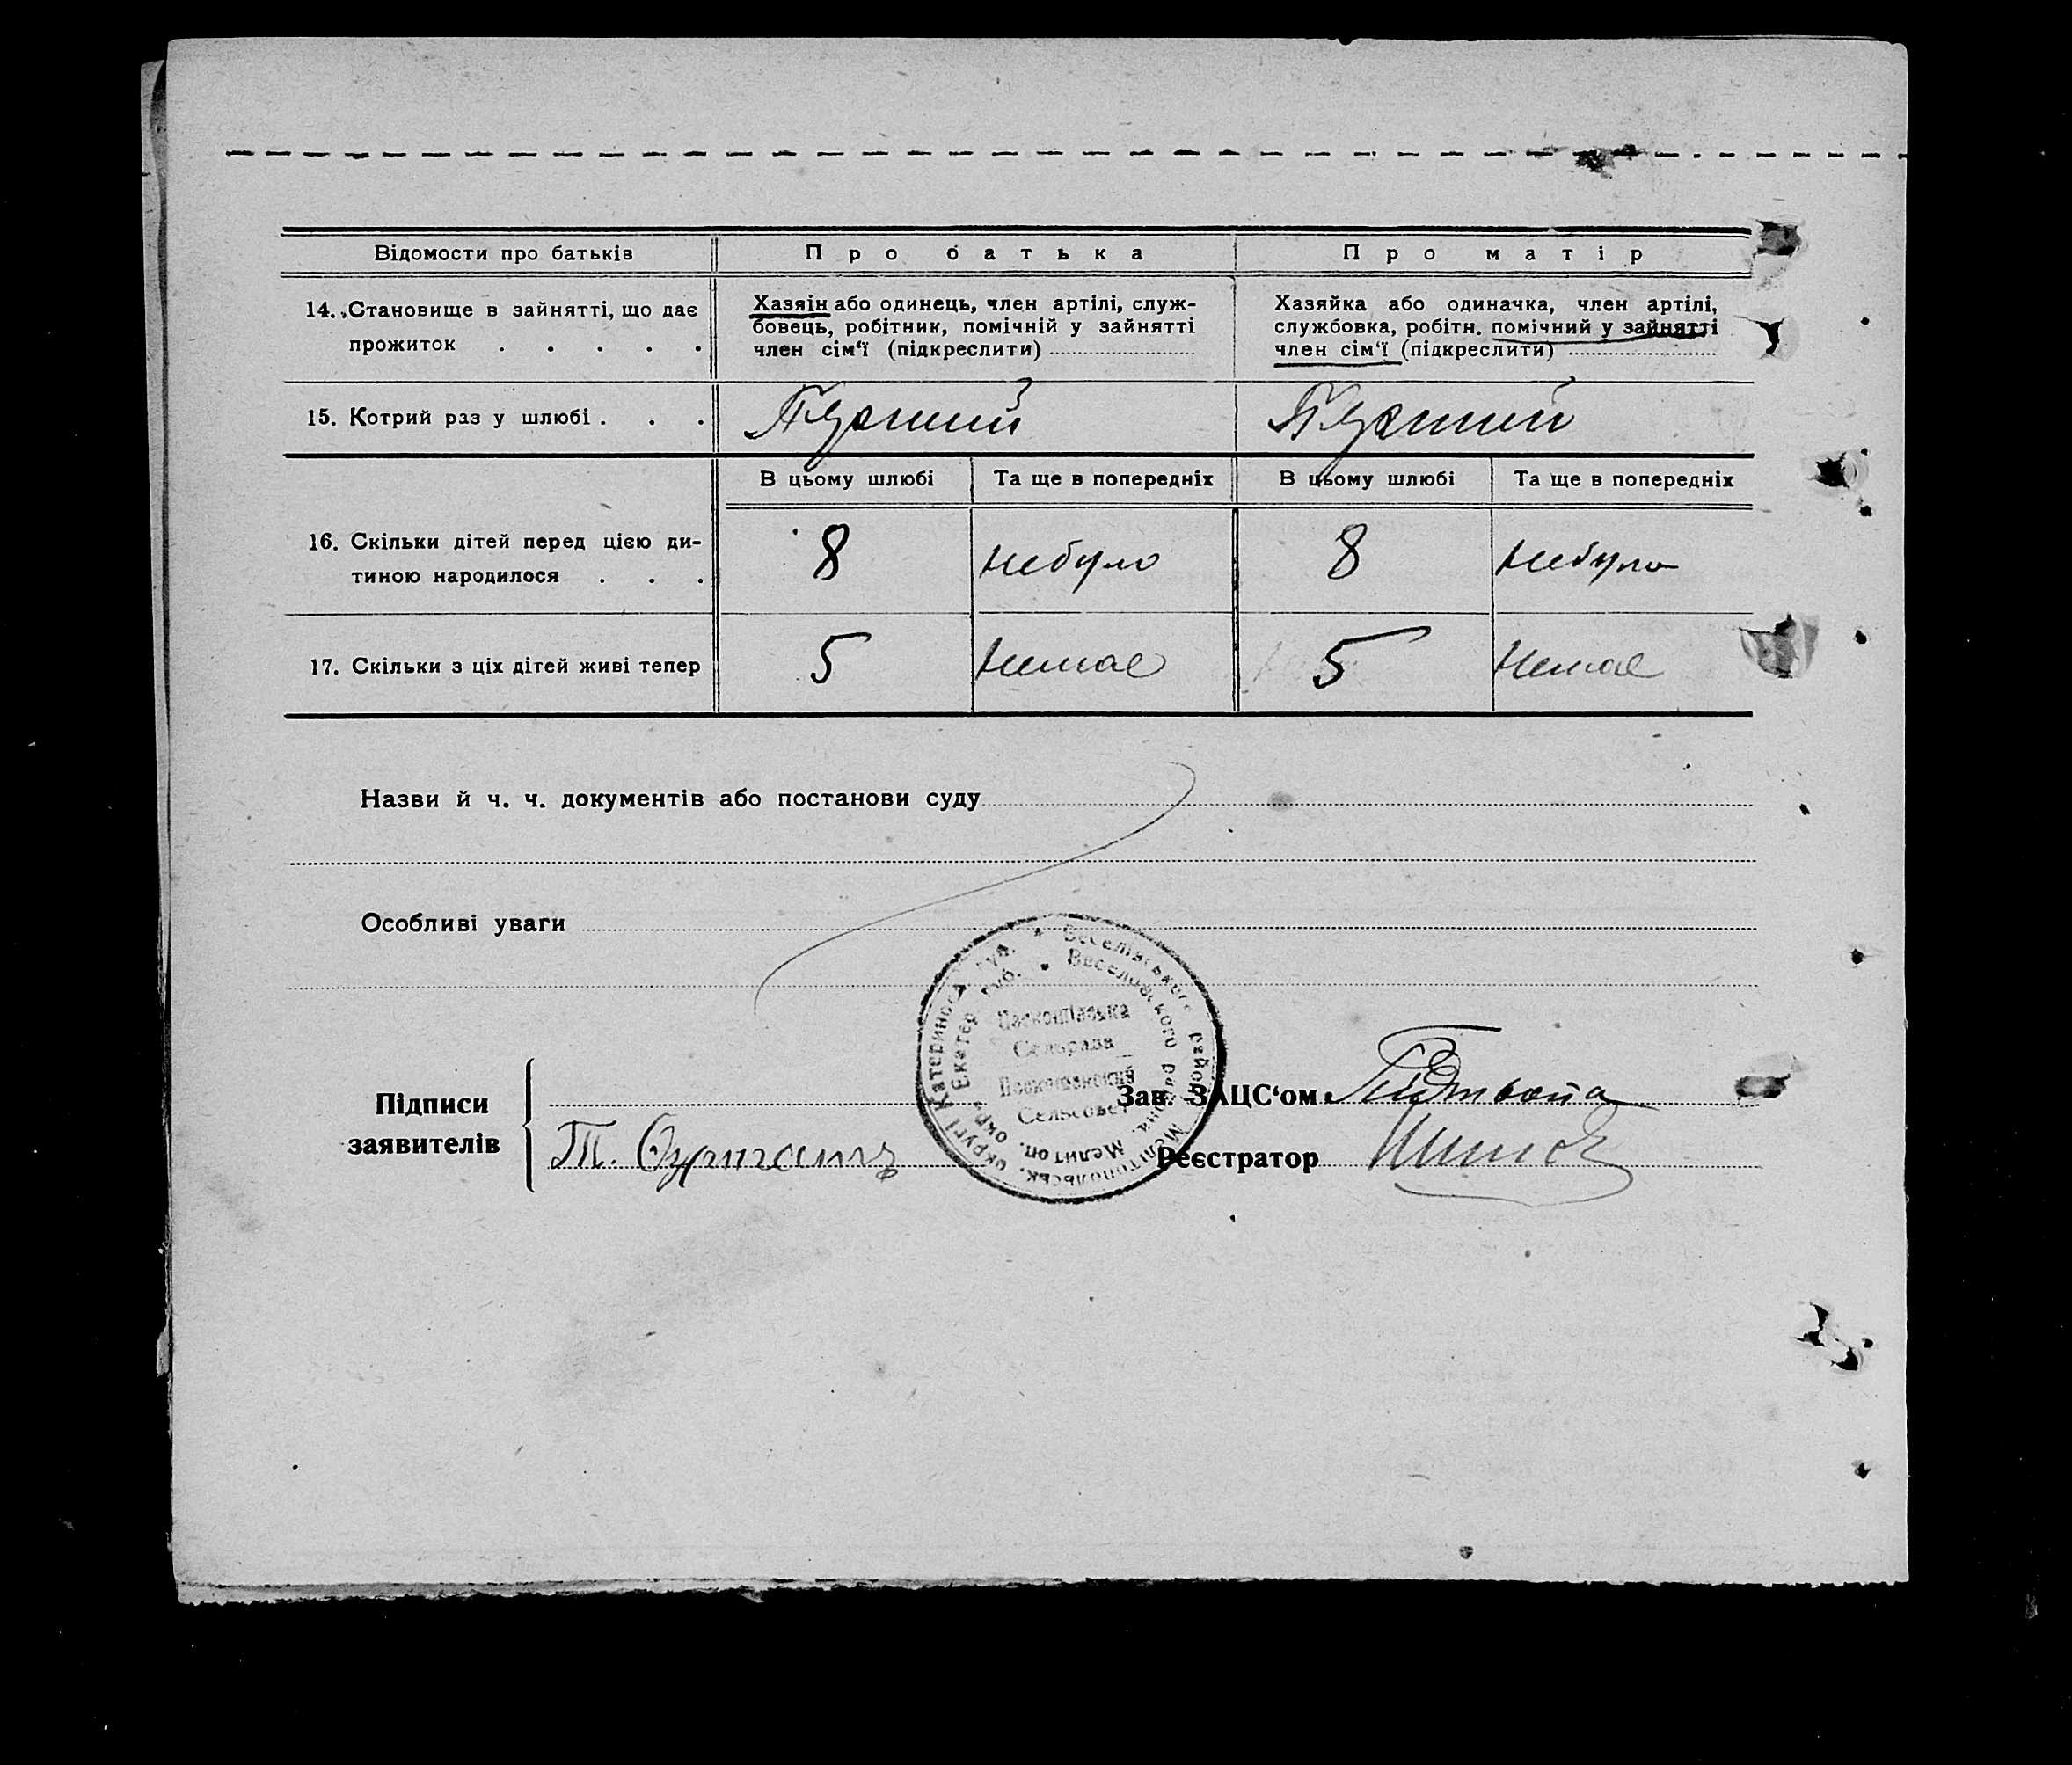 Відомости про батьків
Про батька
Про матір
14. Становище в зайнятті, що дає
прожиток . . . . .
Хазяін або одинець, член артілі, служ-
бовець, робітник, помічній у зайнятті
член сім‘ї (підкреслити)
Хазяйка або одиначка, член артілі,
службовка, робітн. помічний у зайнятті
член сім‘ї (підкреслити)
15. Котрий раз у шлюбі . . .
В цьому шлюбі
Та ще в попередніх
В цьому шлюбі
Та ще в попередніх
16. Скільки дітей перед цією ди-
тиною народилося . . .
8
небуло
8
небуло
17. Скільки з ціх дітей живі тепер
5
Немає
5
Немає
Назви й ч. ч. документів або постанови суду
Особливі уваги
Веселівського району Мелітопольськ. округі Катериносл. губ.
Веселовского района, Мелитоп. окр. Екатер. губ.
Сельрада
Сельсовет
Підписи
заявителів
Т.
Зав. ЗАЦС‘ом
Реєстратор